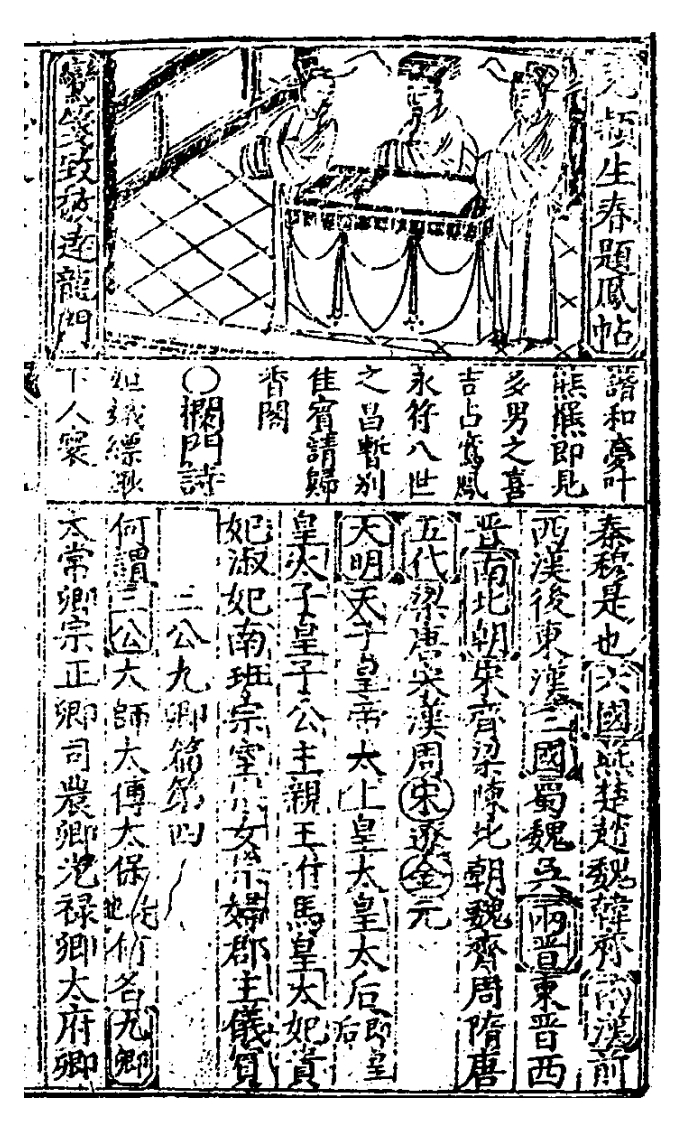 頴生春題鳳帖
鸞箋致達龍門
諧和夢叶
熊羆即見
多男之喜
吉占鸞鳳
永符八世
之昌暫別
佳賓請歸
香閣
〇攔門詩
姮娥縹緲
下人寰
秦穆是也六國燕楚趙魏韓齊兩漢前
西漢後東漢三國蜀魏吳兩晋東晋西
晋南北朝宋齊梁陳北朝魏齊周隋唐
五代梁唐晋漢周宋遼金元
大明天子皇帝太上皇太皇太后即皇后
皇太子皇子公主親王付馬皇太妃貴
妃淑妃南班宗室宗女宗婦郡主儀賓
三公九卿篇第四
何謂三公太師太傅太保是也何名九卿
太常卿宗正卿司農卿光禄卿太府卿